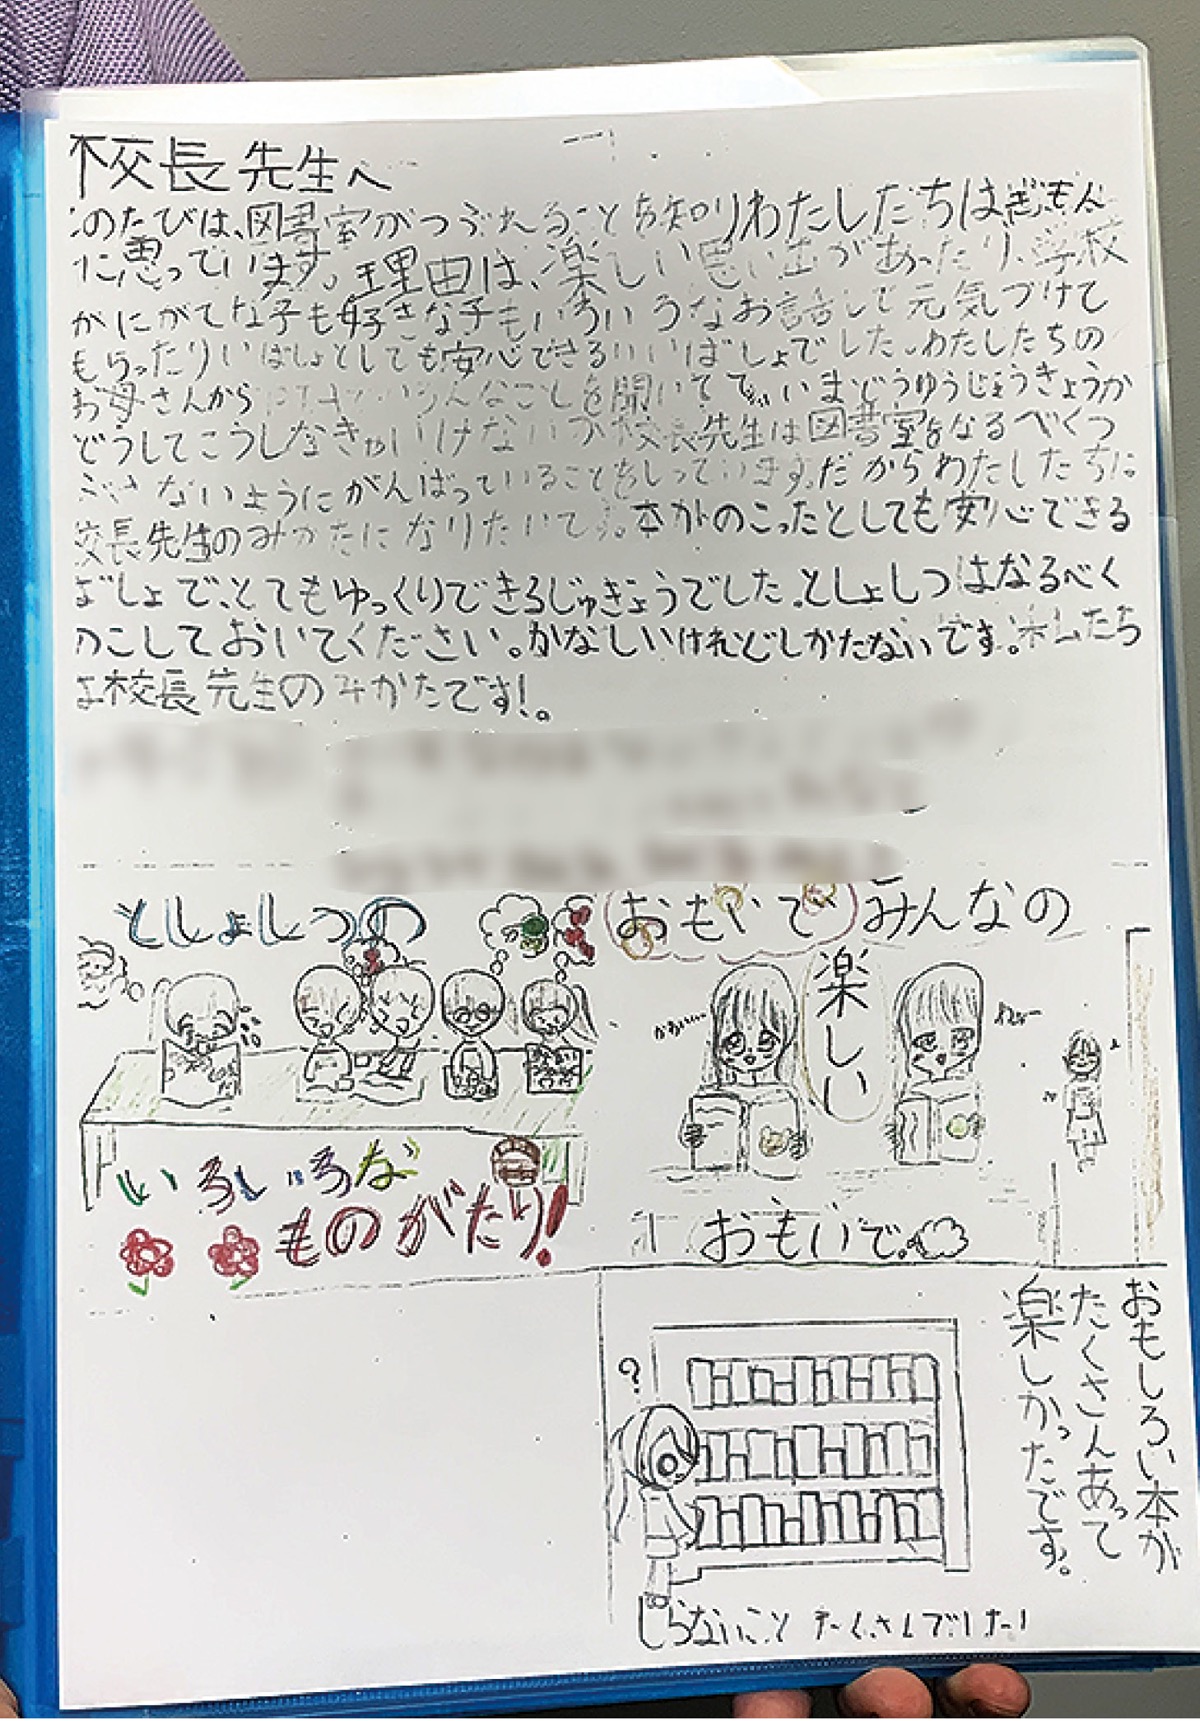 校長先生へ
このたびは、図書室がつぶれることを知りわたしたちはぎもん
に思っています。理由は、楽しい思い出があったり、学校
がにがてな子も好きな子もいろいろなお話しで元気づけて
もらったりいばしょとしても安心できるいいばしょでした。わたしたちの
お母さんから いろんなことを聞いて いまどうゆうじょうきょうか
どうしてこうしなきゃいけないか校長先生は図書室をなるべくつ
ぶさないようにがんばっていることをしっています。だからわたしたちは
校長先生のみかたになりたいです。本がのこったとしても安心できる
ばしょで、とてもゆっくりできるじゅきょうでした。としょしつはなるべく
のこしておいてください。かなしいけれどしかたないです。私したち
は校長先生のみかたです!。
としょしつの
おもいで みんなの
楽しい
いろいろな
ものがたり!
おもいで。
おもしろい本が
たくさんあって
楽しかったです。
?
しらないこと たくさんでした!